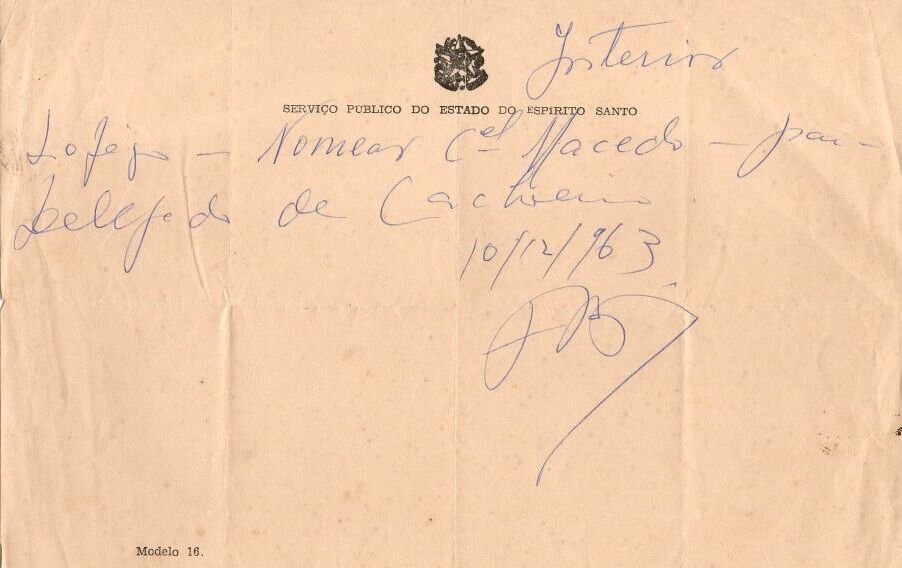 Interior
SERVIÇO PÚBLICO DO ESTADO DO ESPÍRITO SANTO
Nomear Cel Macedo — para
Delegado de Cachoeiro
10/12/963
Modelo 16.